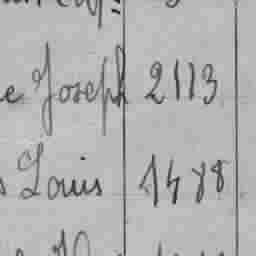 e Joseph 2113
s Louis 1488